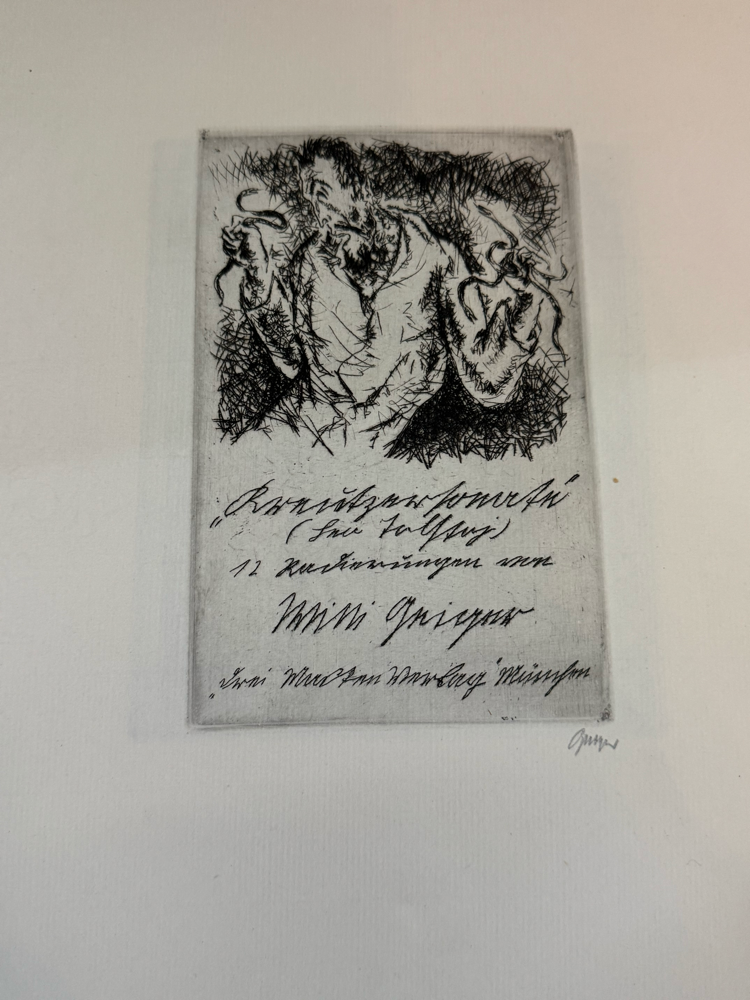 „Kreutzersonate"
(Leo Tolstoj)
12 Radierungen von
Willi Geiger
„Drei Masken Verlag" München
Geiger